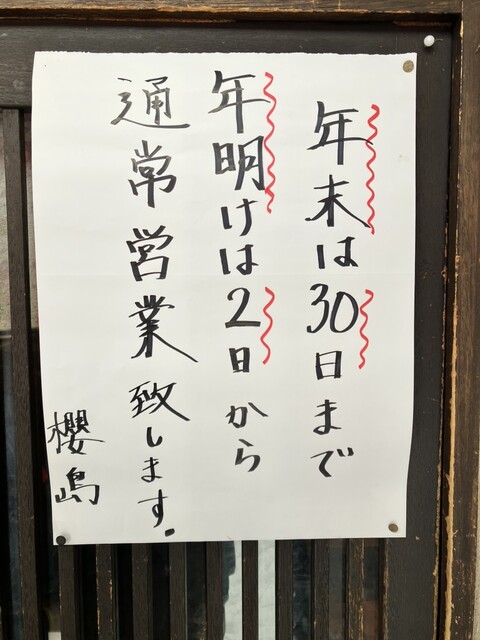 年末は30日まで
年明けは2日から
通常営業致します.
櫻島